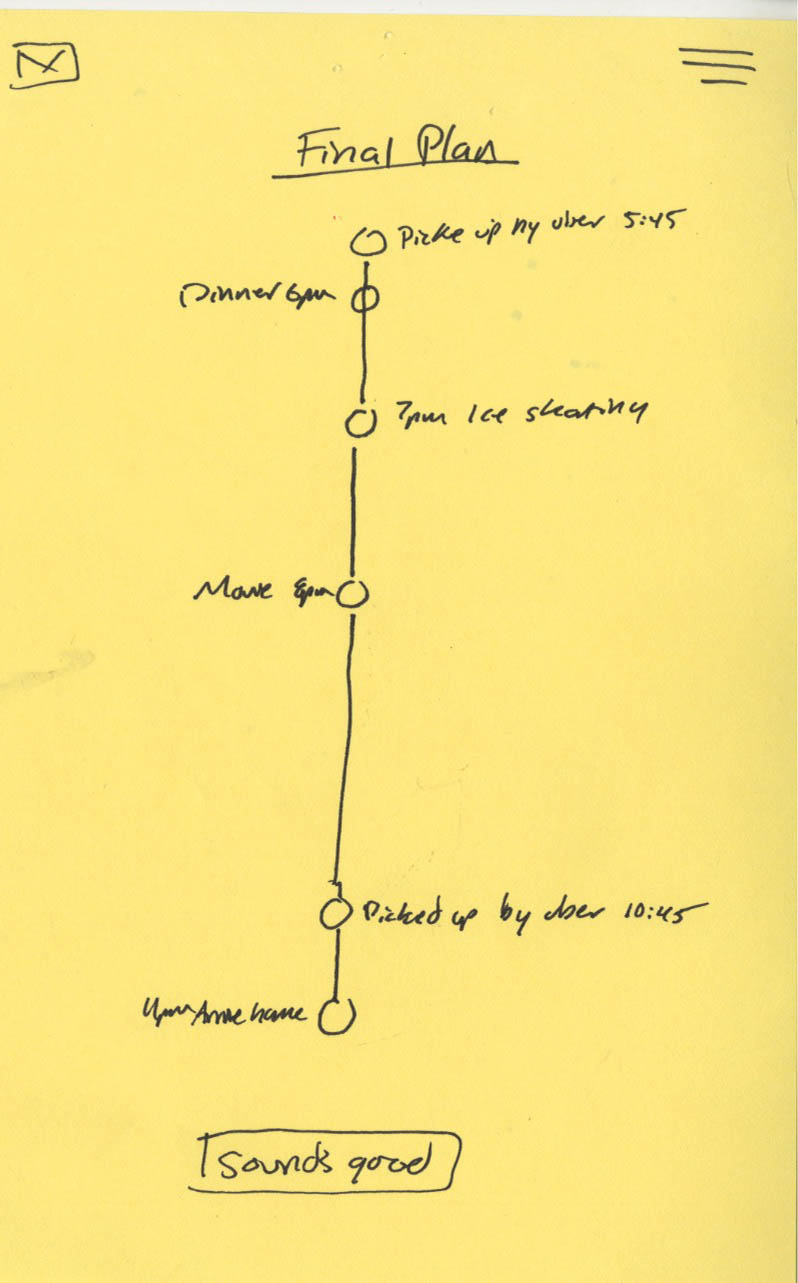 Final Plan
Picke up by uber 5:45
Dinner 6pm
7pm Ice skating
Movie 8pm
Picked up by uber 10:45
11pm Arrive home
Sounds good